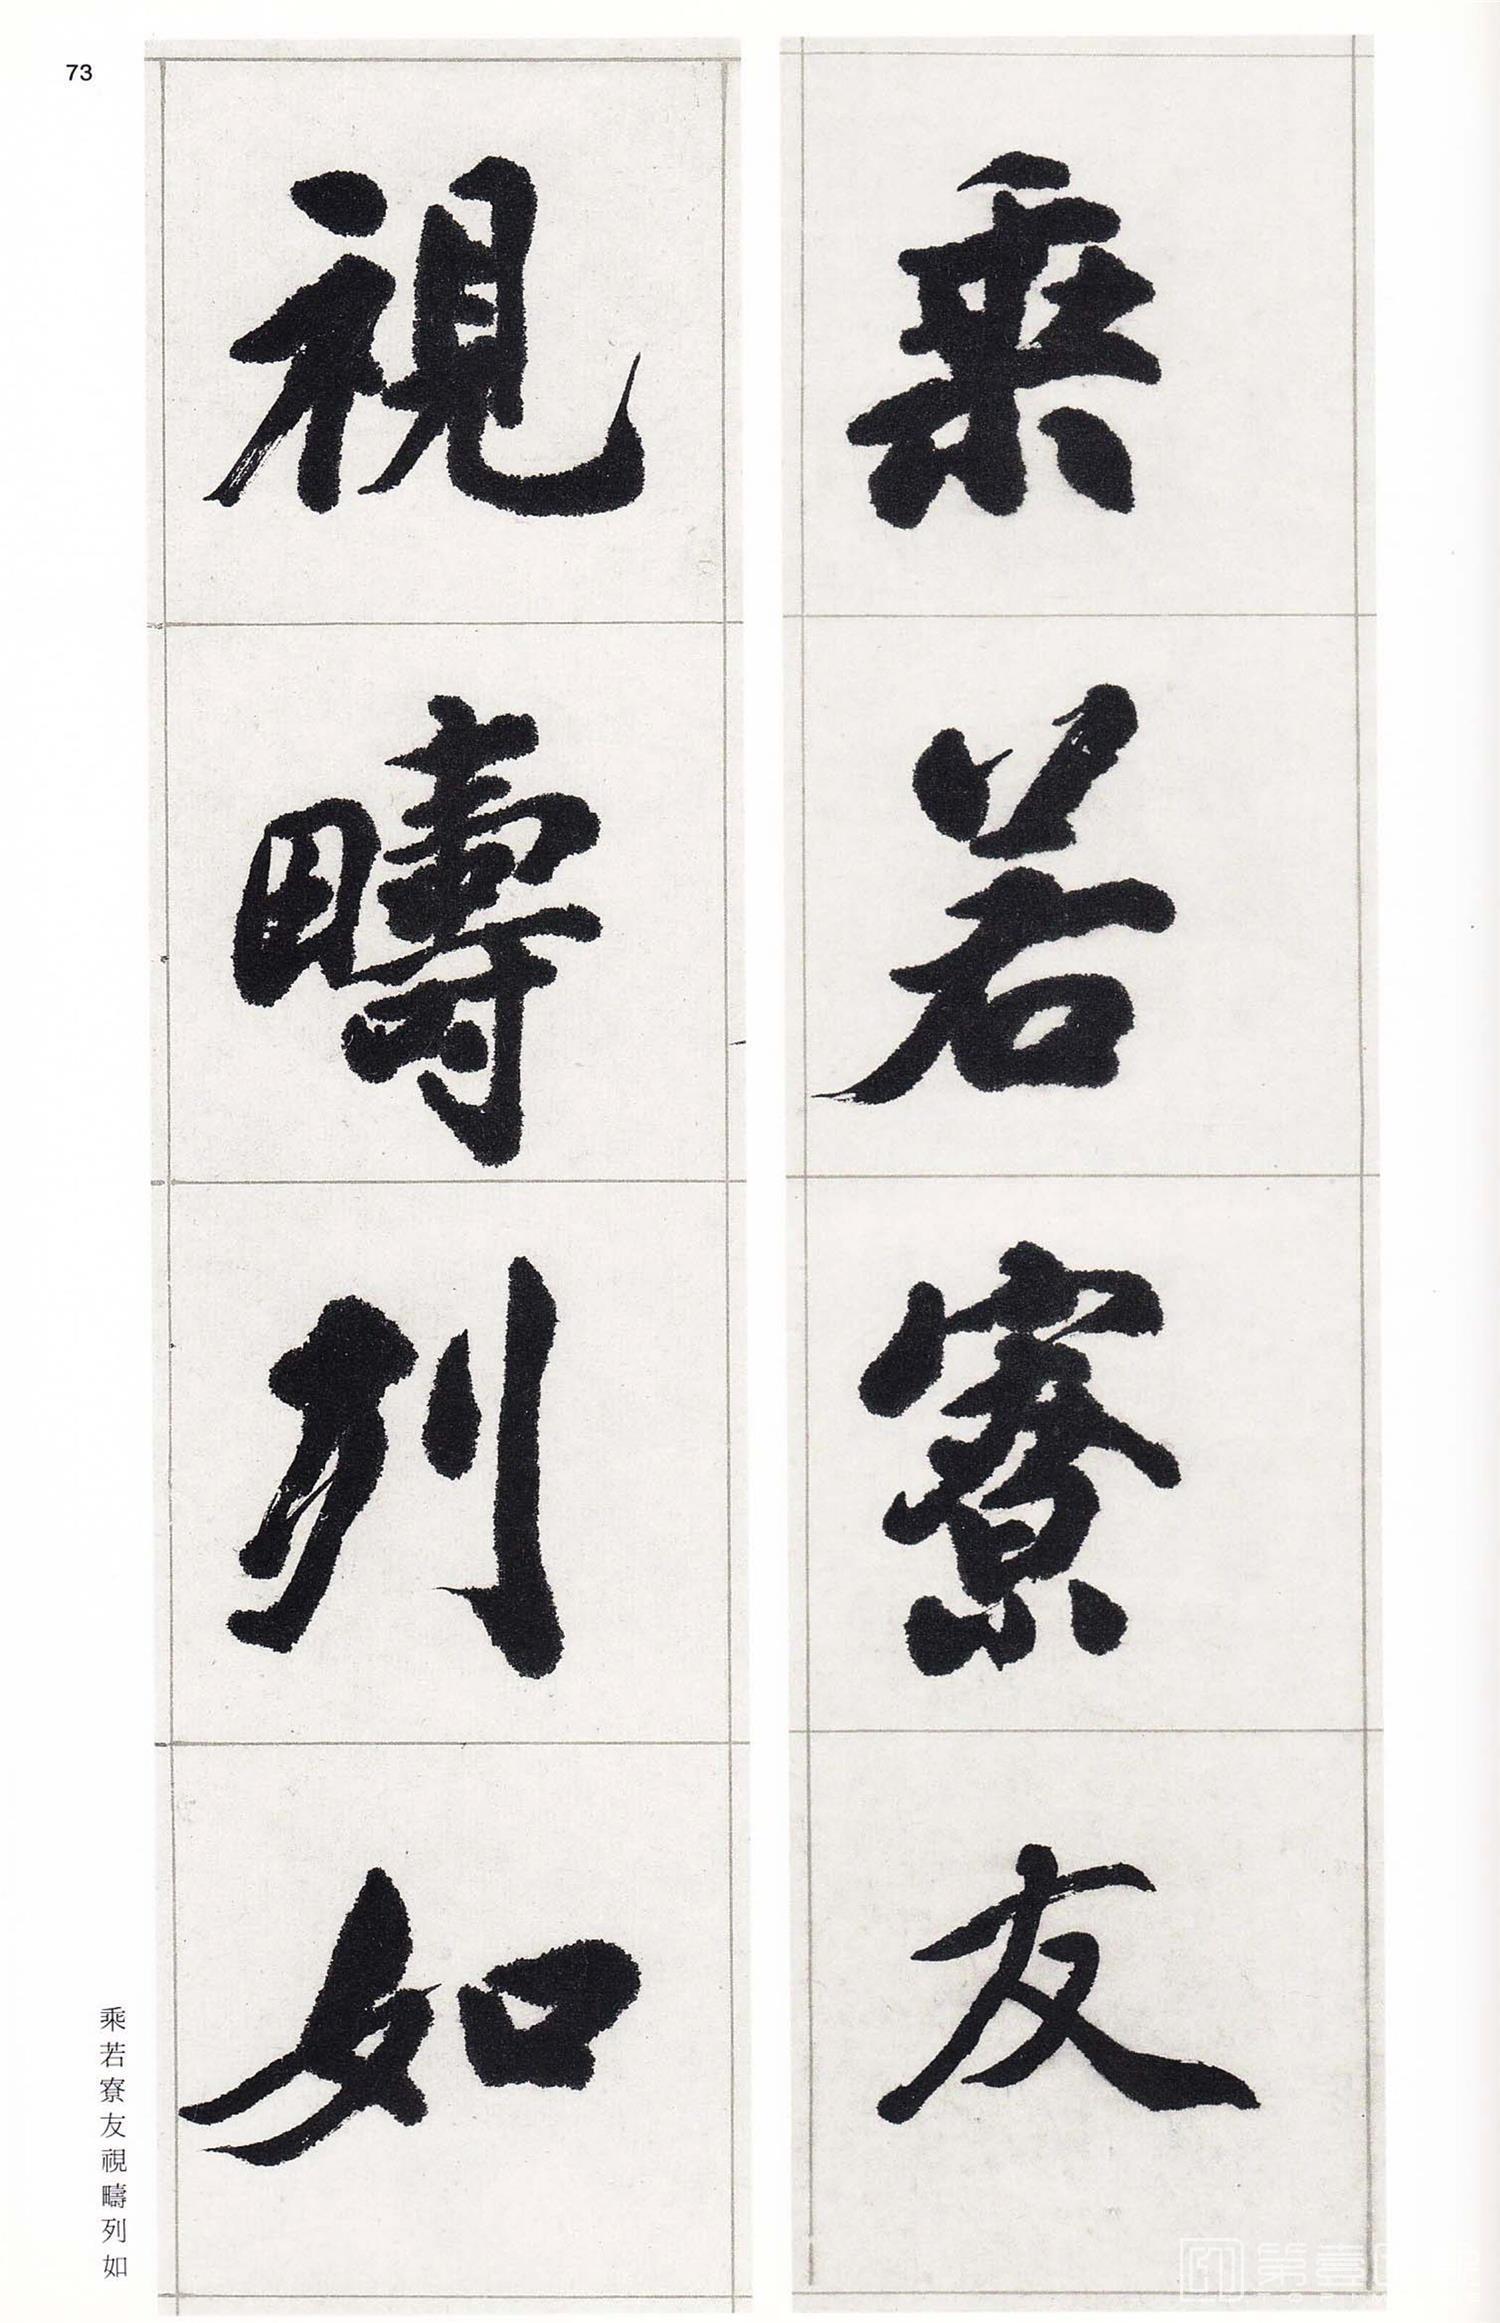 73
乘若寮友
視疇列如
乘若寮友視疇列如